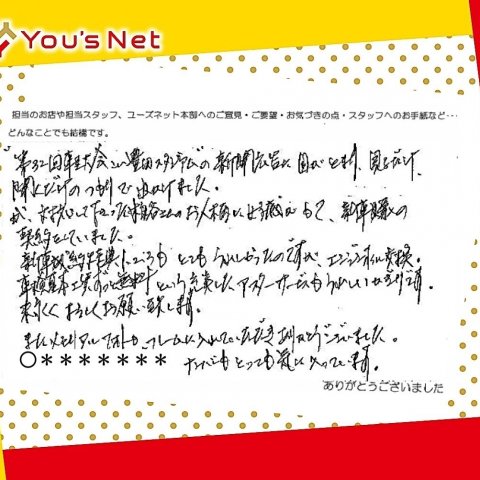 You's Net
担当のお店や担当スタッフ、ユーズネット本部へのご意見・ご要望・お気づきの点・スタッフへのお手紙など…
どんなことでも結構です。
"第32回車王大会 in 豊田スタジアム"の新聞広告に目がとまり、見るだけ、
聞くだけのつもりで出かけました。
お人柄に好感がもて、新車購入の
契約をしていました。
とてもうれしかったのですが、エンジンオイル交換、
無料という充実したアフターサービスもうれしいかぎりです。
末永くよろしくお願い致します。
またメモリアルフォト、フレームに入れていただきありがとうございました。
○*******
ナンバーもとっても気に入っています。
ありがとうございました